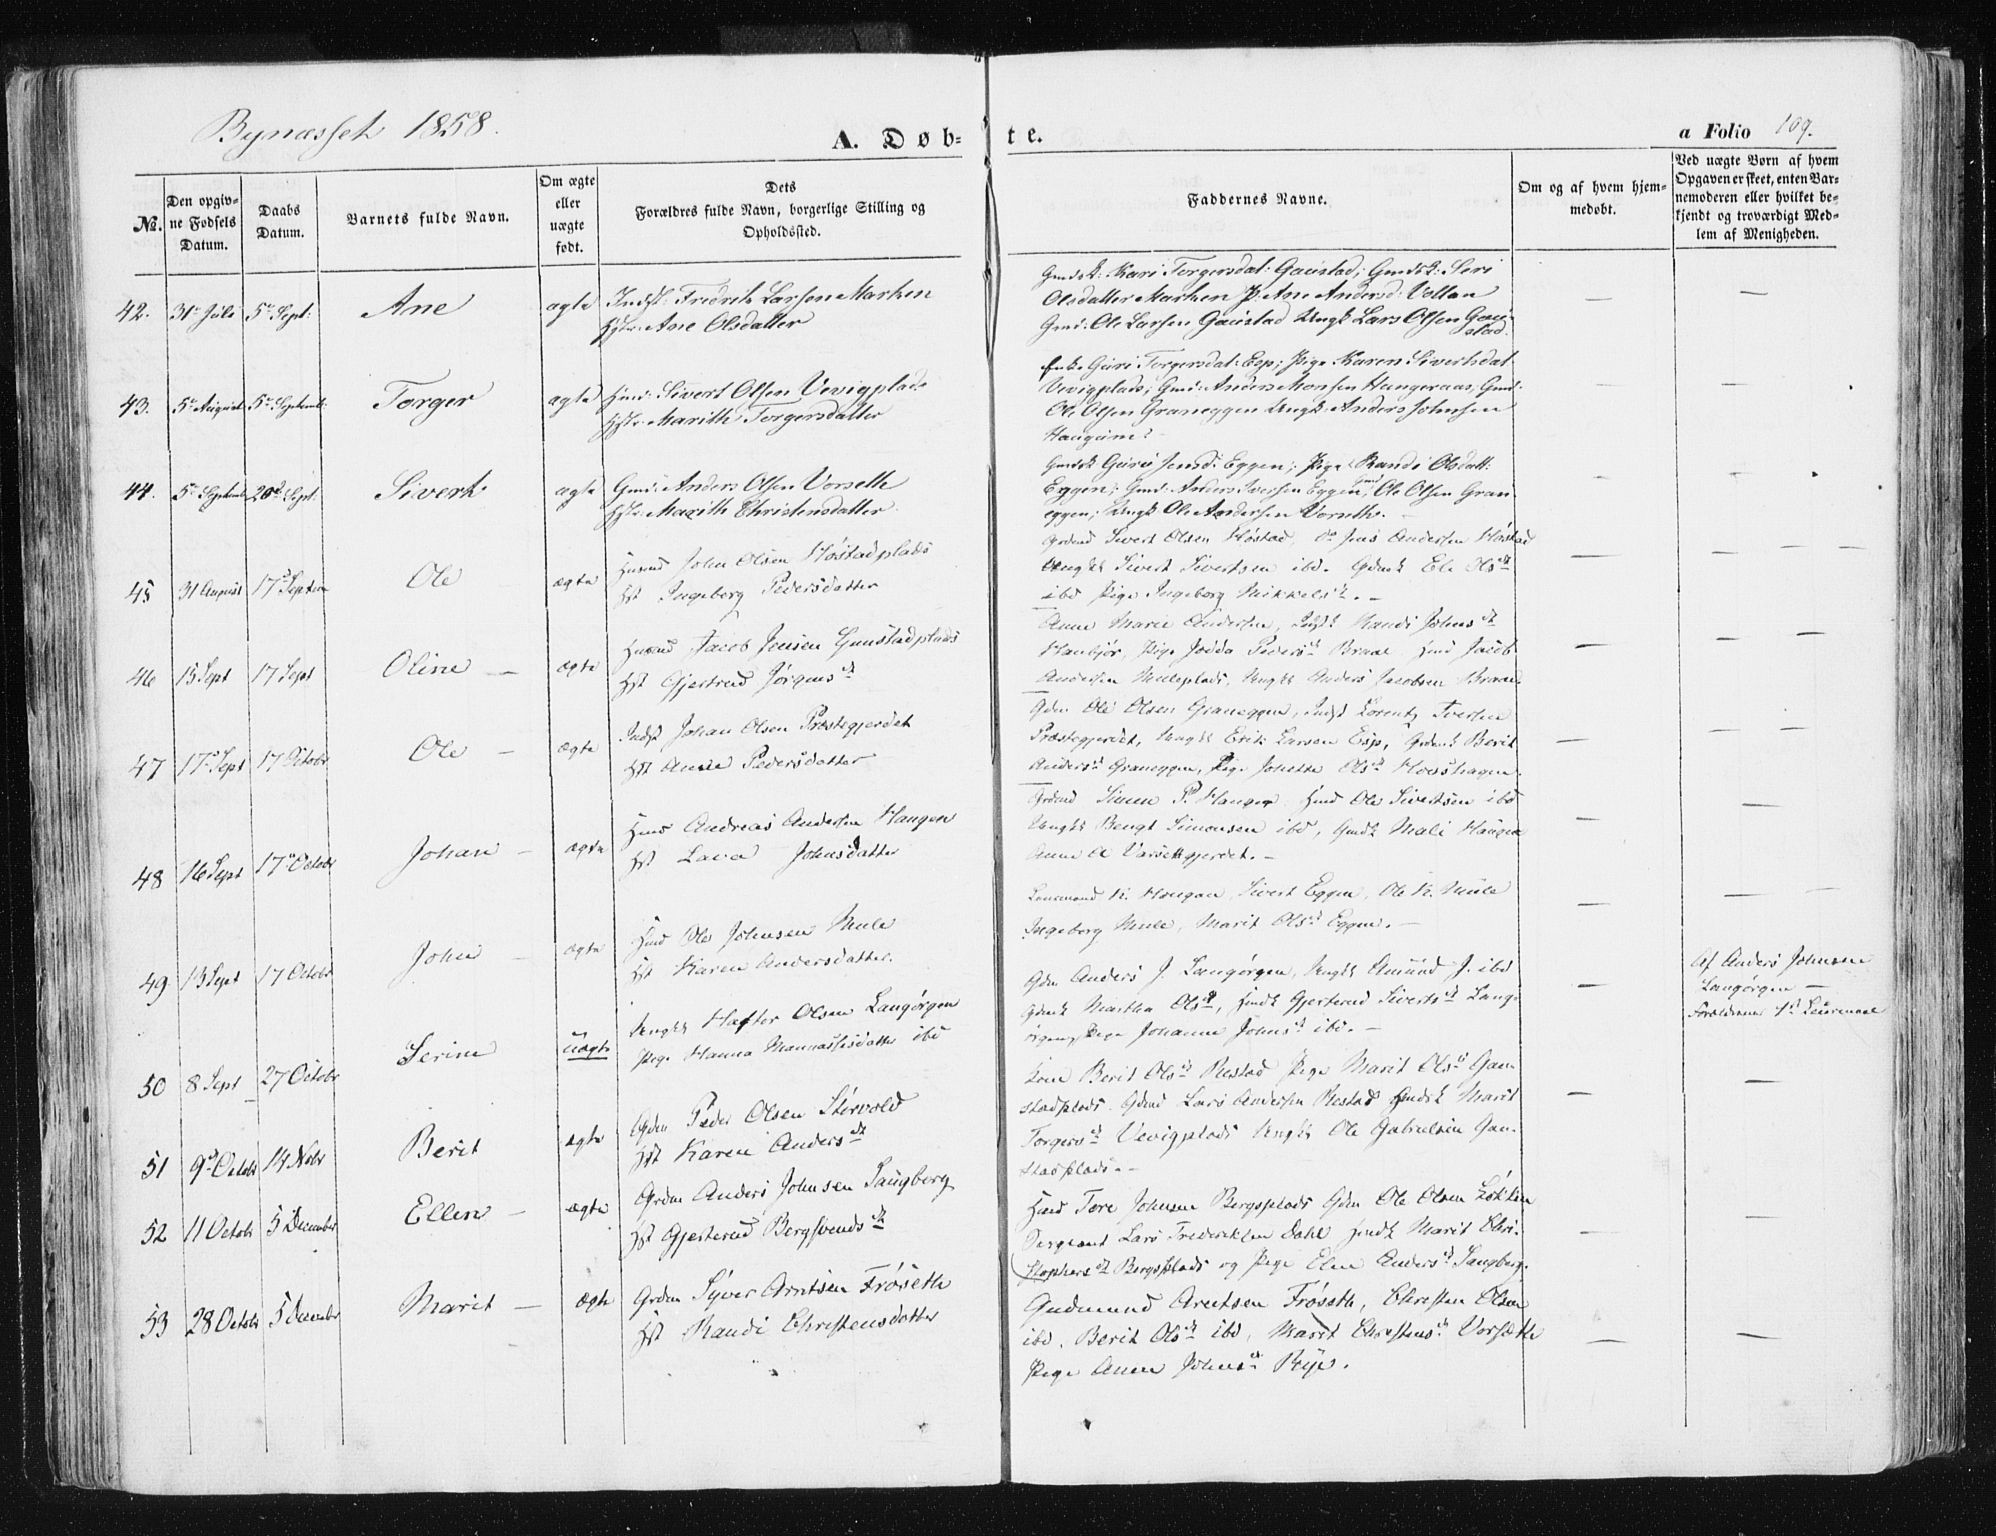 Bynæsset 1858.
A. Døb-
te.
a Folio 109.
No.
Den opgiv-
ne Fødsels
Datum.
Daabs
Datum.
Barnets fulde Navn.
Om ægte
eller
uægte
født.
Dets
Forældres fulde Navn, borgerlige Stilling og
Opholdssted.
Faddernes Navne.
Om og af hvem hjem-
medøbt.
Ved uægte Børn af hvem
Opgaven er skeet, enten Bar-
nemoderen eller hvilket be-
kjendt og troværdigt Med-
lem af Menigheden.
42. 31te Juli 5te Sept: Ane ægte Indst: Fredrik Larsen Marken
Hstr: Ane Olsdatter
Gmdsk: Kari Torgersdat: Gaustad; Gmdsk: Siri
Olsdatter Marken P: Ane Andersd: Vollan
Gmd: Ole Larsen Gaustad Ungk Lars Olsen Gau-
stad.
43. 5te August 5te Septemb: Torger ægte Hmd: Sivert Olsen Vevigplads
Hstr: Marith Torgersdatter
Enke Guri Torgersdat: Esp; Pige Karen Sivertsdat
Vevigplads; Gmd: Anders Monsen Hangeraas; Gmd:
Ole Olsen Graneggen Ungk: Anders Johnsen
44. 5te Septemb 20de Sept: Sivert ægte Gmd: Anders Olsen Vorseth
Hstr: Marith Christensdatter
Gmdsk Guru Jensd: Eggen; Pige Randi Olsdatt:
Eggen; Gmd: Anders Iversen Eggen; Gmd Ole Olsen Gran
eggen; Ungk Ole Andersen Vorseth.
45 31 August 17de Septem Ole ægte Husmd John Olsen Høstadplads
Hst Ingeborg Pedersdatter
Grdmd Sivert Olsen Høstad, do Jens Andersen Høstad
Ungkk Sivert Sivertsen ibd. Gdmk Eli Olsdt
ibd Pige Ingeborg Mikkelsd. -
46 15 Sept 17 Sept Oline - ægte Husmd Jacob Jensen Gunstadplads
Hst Gjertrud Jørgensdt
Anne Marie Andersen, Randi Johnsdt
Pige Pedersdt Braae. Hmd Jacob
Andersen Muleplads, Ungkk Anders Jacobsen Braae
47 17de Sept 17 Octobr Ole - ægte Indst Johan Olsen Præstegjerdet
Hst Anne Pedersdatter
Gdm Ole Olsen Graneggen, Indst Lorentz Iversen
Præstegjerdet, Ungkk Erik Larsen Esp, Grdmk Berit
Andersdt Graneggen, Pige Johette Olsdt Hovshagen.
48 16 Sept 17de Octobr Johan - ægte Hmd Andreas Andersen Haugen
Hst Lava Johnsdatter
Grdmd Simen P. Haugen Hmd Ole Sivertsen ibd
Ungkk Bengt Simonsen ibd, Gmdk Mali Haugen
Anne A Varsethgjerdet. -
49 13 Sept 17 Octobr John - ægte Hmd Ole Johnsen Mule
Hst Karen Andersdatter.
Lensmand K. Haugan, Sivert Eggen, Ole K. Mule
Ingeborg Mule, Marit Olsdt Eggen. -
50 8 Sept 27 Octobr Serine uægte Ungkk Haftor Olsen Langørgen
Pige Hanna Mannassesdatter ibd
Gdm Anders J. Langørgen, Ungkk Amund J. ibd
Gdmk Martha Olsdt, Hmdk Gjertrud Sivertsdt Lang-
ørgen, Pige Johanne Johnsdt ibd. -
Af Anders Johnsen
Langørgen -
Forældrenes 1ste Leiermaal
51 9de Octobr 14 Novbr Berit ægte Gdm Peder Olsen Størvold
Hst Karen Andersdt
Kone Berit Olsdt Restad Pige Marit Olsdt Gau-
stadplads. Gdmd Lars Andersen Restad Hmdsk Marit
Torgersdt Vevigplads Ungkk Ole Gabrielsen Gau-
stadplads. -
52 11 Octobr 5 December Ellen - ægte Grdm Anders Johnsen Langberg
Hst Gjertrud Bergsvendsdt
Hmd Tore Johnsen Bergsplads Gdm Ole Olsen Løkken
Sergeant Lars Frederiksen Dahl Hmdk Marit Chri-
stophersdt Bergsplads og Pige Elen Andersdt Langberg.
53 28 Octobr 5 December Marit - ægte Grdm Syver Arntsen Frøseth
Hst Randi Christensdatter
Gudmund Arntsen Frøseth, Christen Olsen
ibd. Berit Olsdt ibd, Marit Christensdt Vorsæth
Pige Anne Johnsdt Rye.